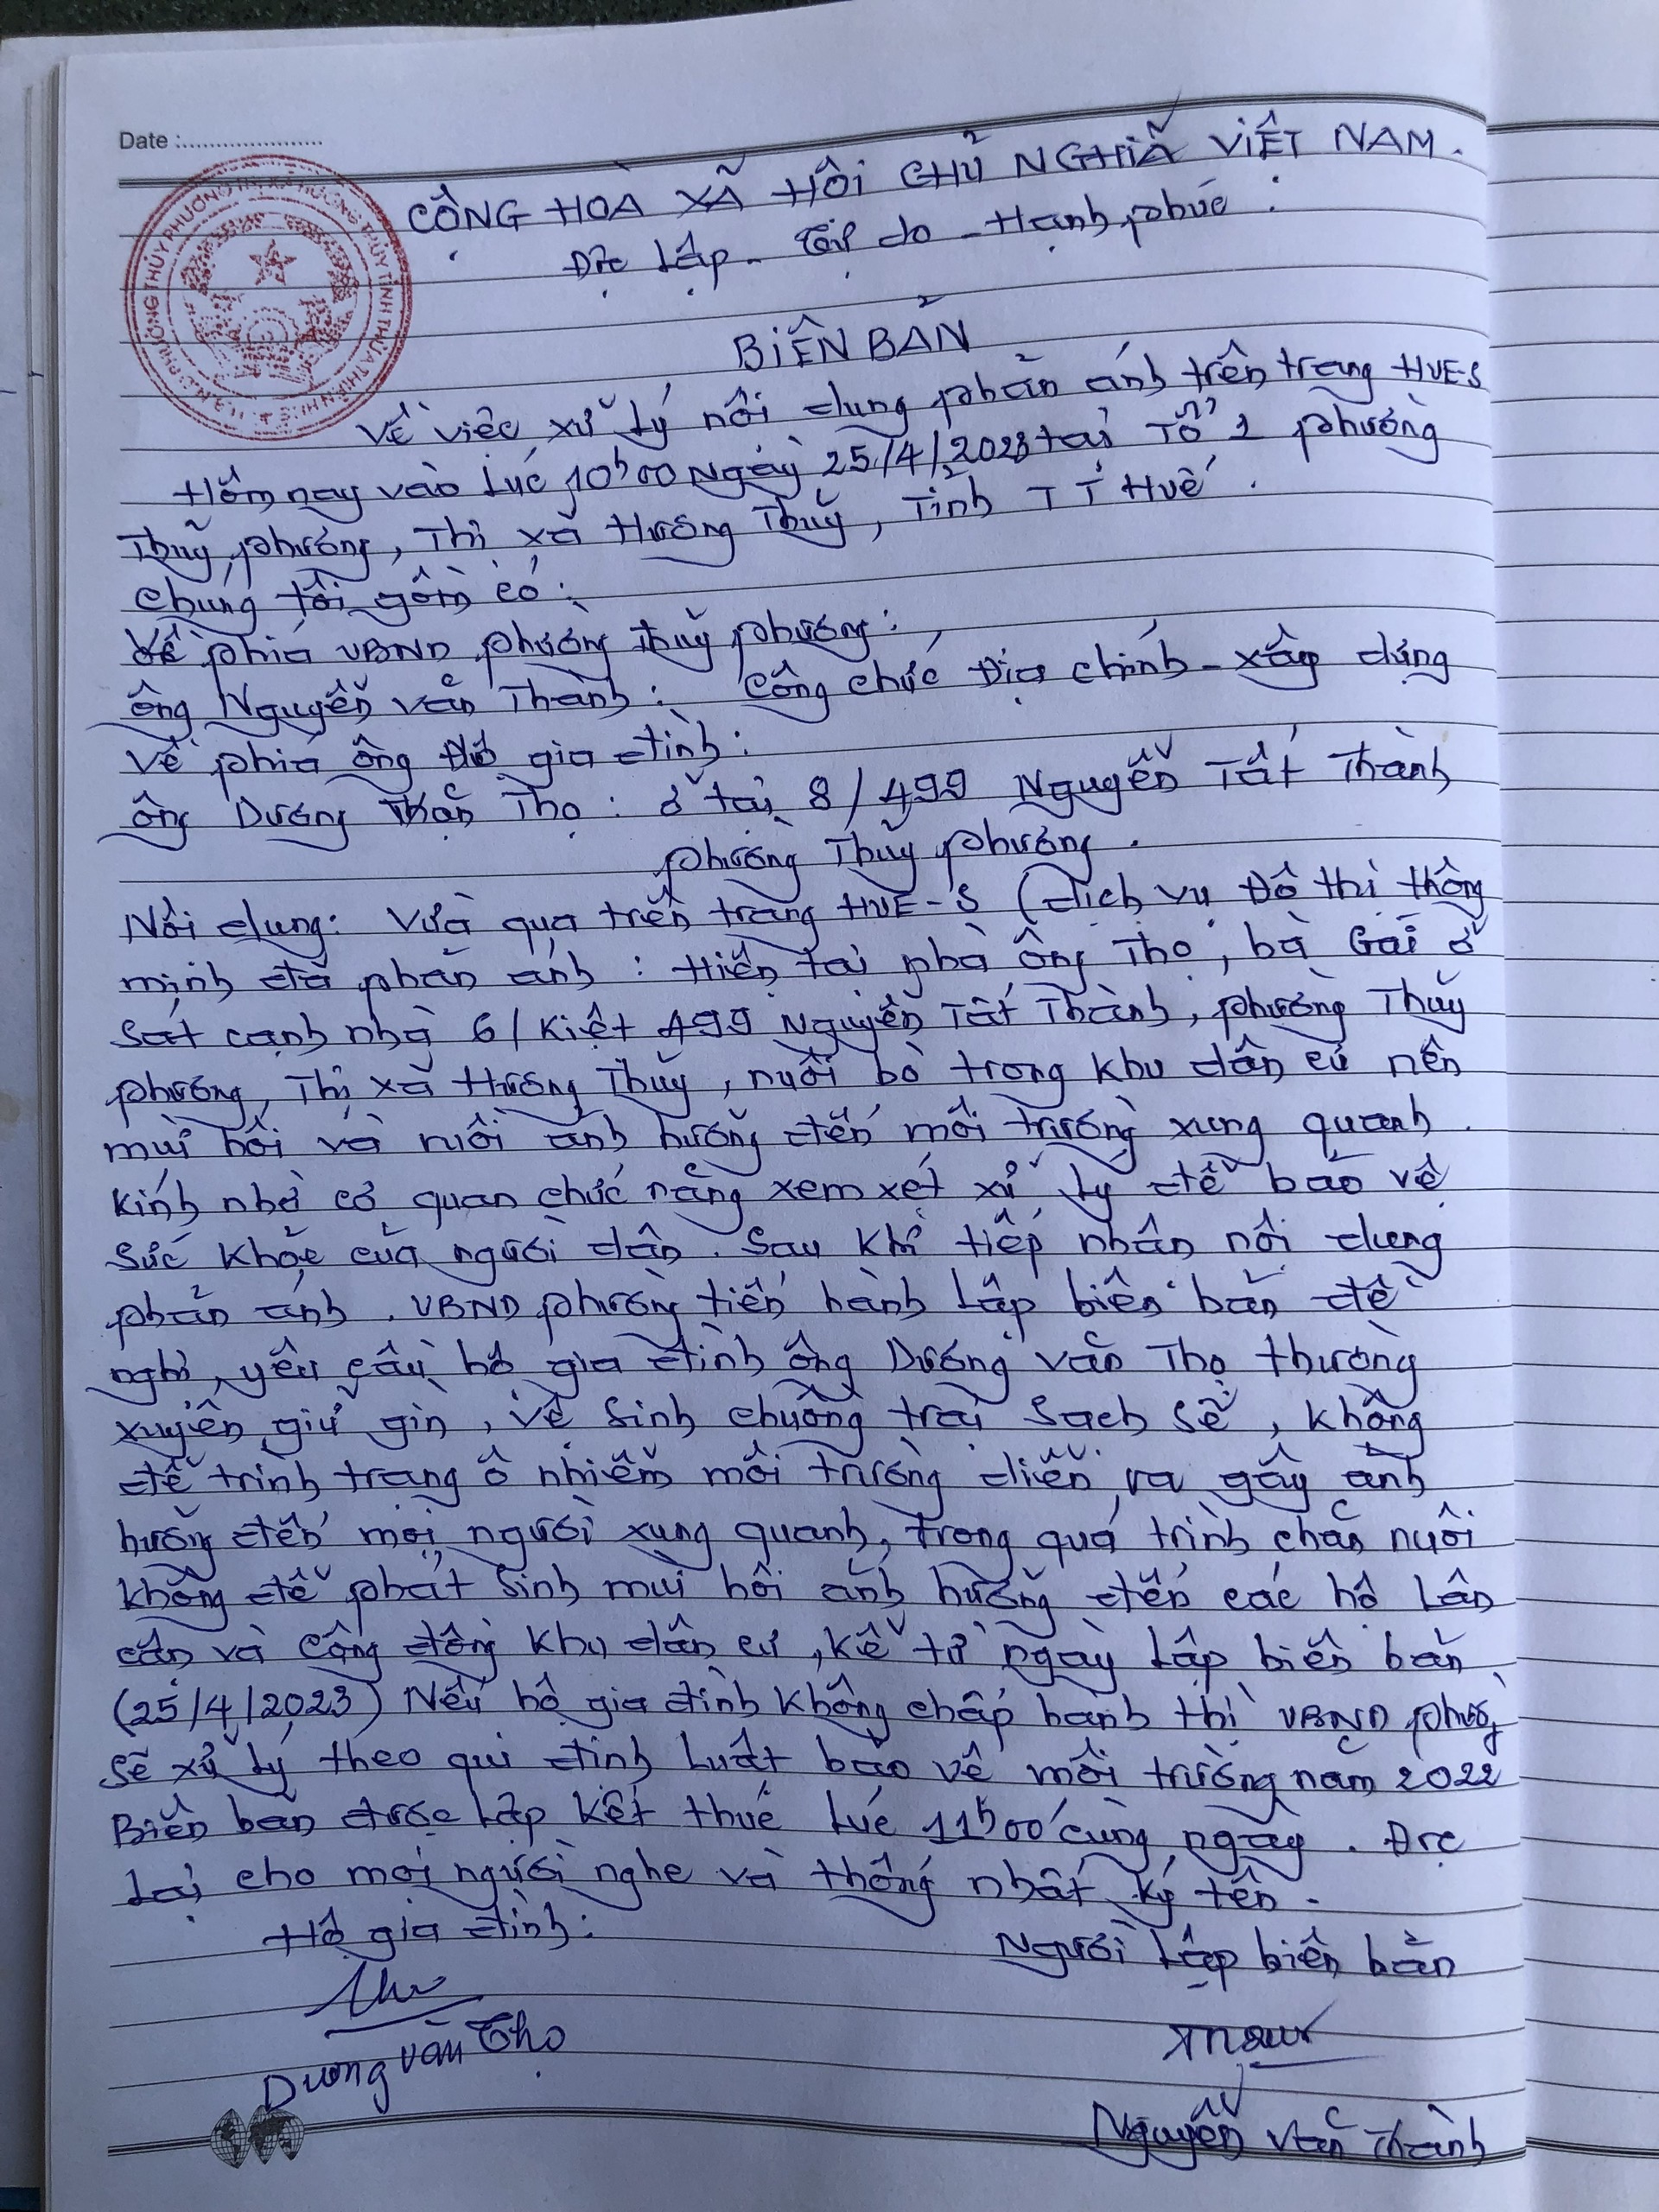 Date :........................
CỘNG HOÀ XÃ HỘI CHỦ NGHĨA VIỆT NAM.
Độc lập - Tự do - Hạnh phúc :
BIÊN BẢN
Về việc xử lý nội dung phản ánh trên trang HUE-S
Hôm nay vào lúc 10h00 Ngày 25/4/2023 tại Tổ 1 phường
Thuỷ phương, Thị xã Hương Thuỷ, Tỉnh T T Huế.
Chúng tôi gồm có :
Về phía UBND phường Thuỷ phương :
ông Nguyễn Văn Thành : Công chức Địa chính - xây dựng
Về phía ông gia đình :
ông Dương Thọ : ở tại 8/499 Nguyễn Tất Thành
phường Thuỷ phương .
Nội dung: Vừa qua trên trang HUE-S (dịch vụ Đô thị thông
minh đã phản ánh : Hiện tại nhà ông Thọ, bà Gái ở
sát cạnh nhà 6/Kiệt 499 Nguyễn Tất Thành, phường Thuỷ
phương, Thị xã Hương Thuỷ, nuôi bò trong khu dân cư nên
mùi hôi và ruồi ảnh hưởng đến môi trường xung quanh.
Kính nhờ cơ quan chức năng xem xét xử lý để bảo vệ
sức khỏe của người dân. Sau khi tiếp nhận nội dung
phản ánh. UBND phường tiến hành lập biên bản đề
nghị, yêu cầu hộ gia đình ông Dương Văn Thọ thường
xuyên giữ gìn, vệ sinh chuồng trại sạch sẽ, không
để trình trạng ô nhiễm môi trường diễn ra gây ảnh
hưởng đến mọi người xung quanh, trong quá trình chăn nuôi
không để phát sinh mùi hôi ảnh hưởng đến các hộ lân
cận và cộng đồng khu dân cư, kể từ ngày lập biên bản
(25/4/2023) Nếu hộ gia đình không chấp hành thì UBND phường
sẽ xử lý theo qui định Luật bảo vệ môi trường năm 2022
Biên bản được lập kết thúc lúc 11h00' cùng ngày. Đọc
lại cho mọi người nghe và thống nhất ký tên .
Hộ gia đình :
Người lập biên bản
Dương văn Thọ
Nguyễn Văn Thành